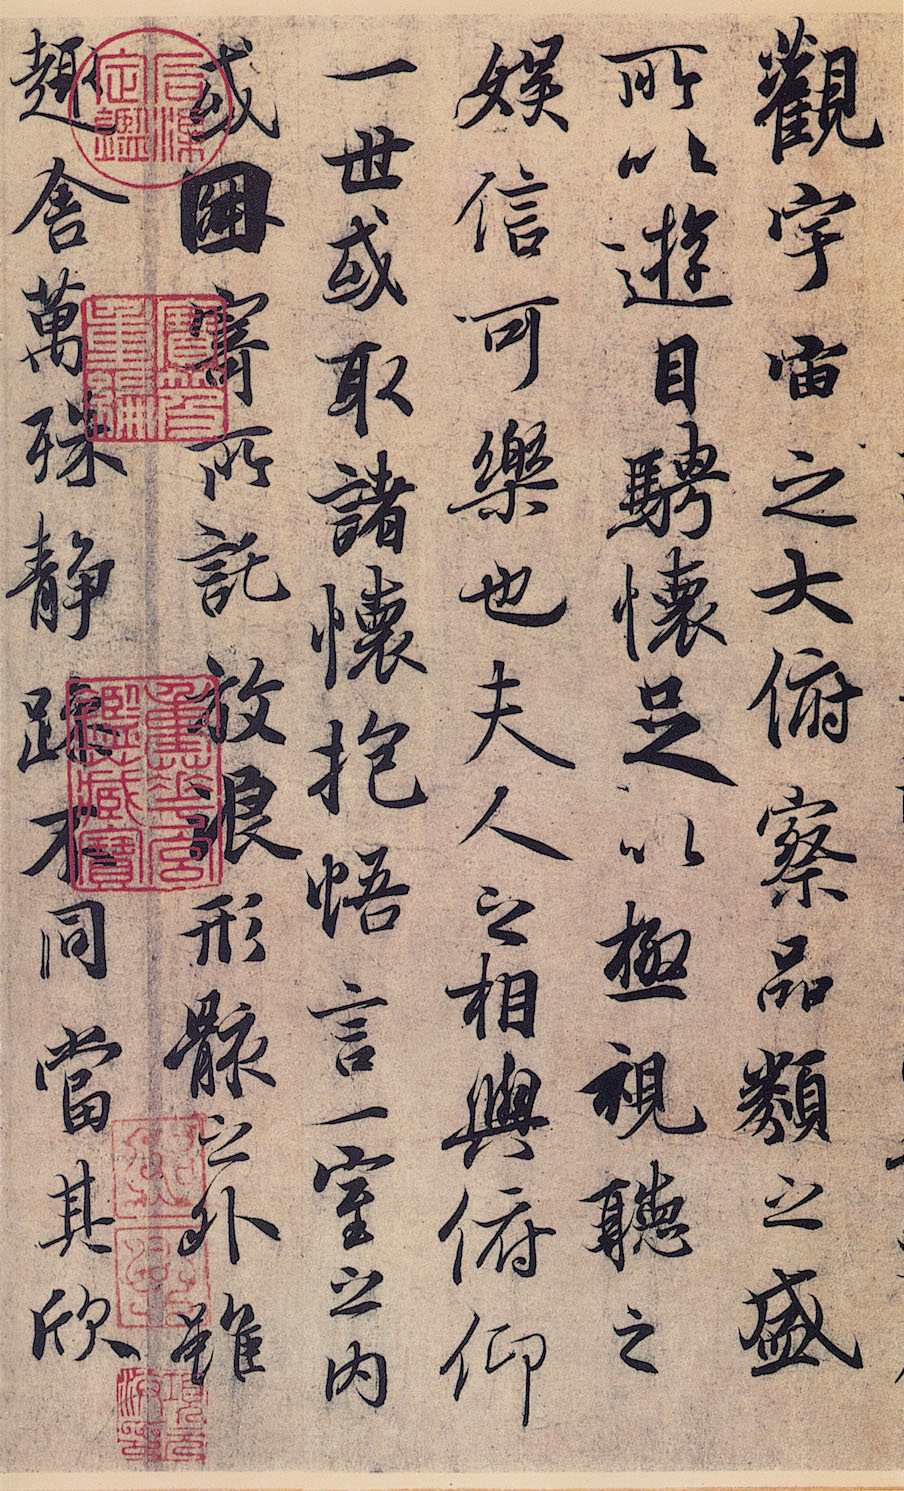 觀宇宙之大俯察品類之盛
所以遊目騁懷足以極視聽之
娛信可樂也夫人之相與俯仰
一世或取諸懷抱悟言一室之内
或因寄所託放浪形骸之外雖
趣舍萬殊靜躁不同當其欣
石渠定鑑
寶笈重編
重華宮鑑藏寶